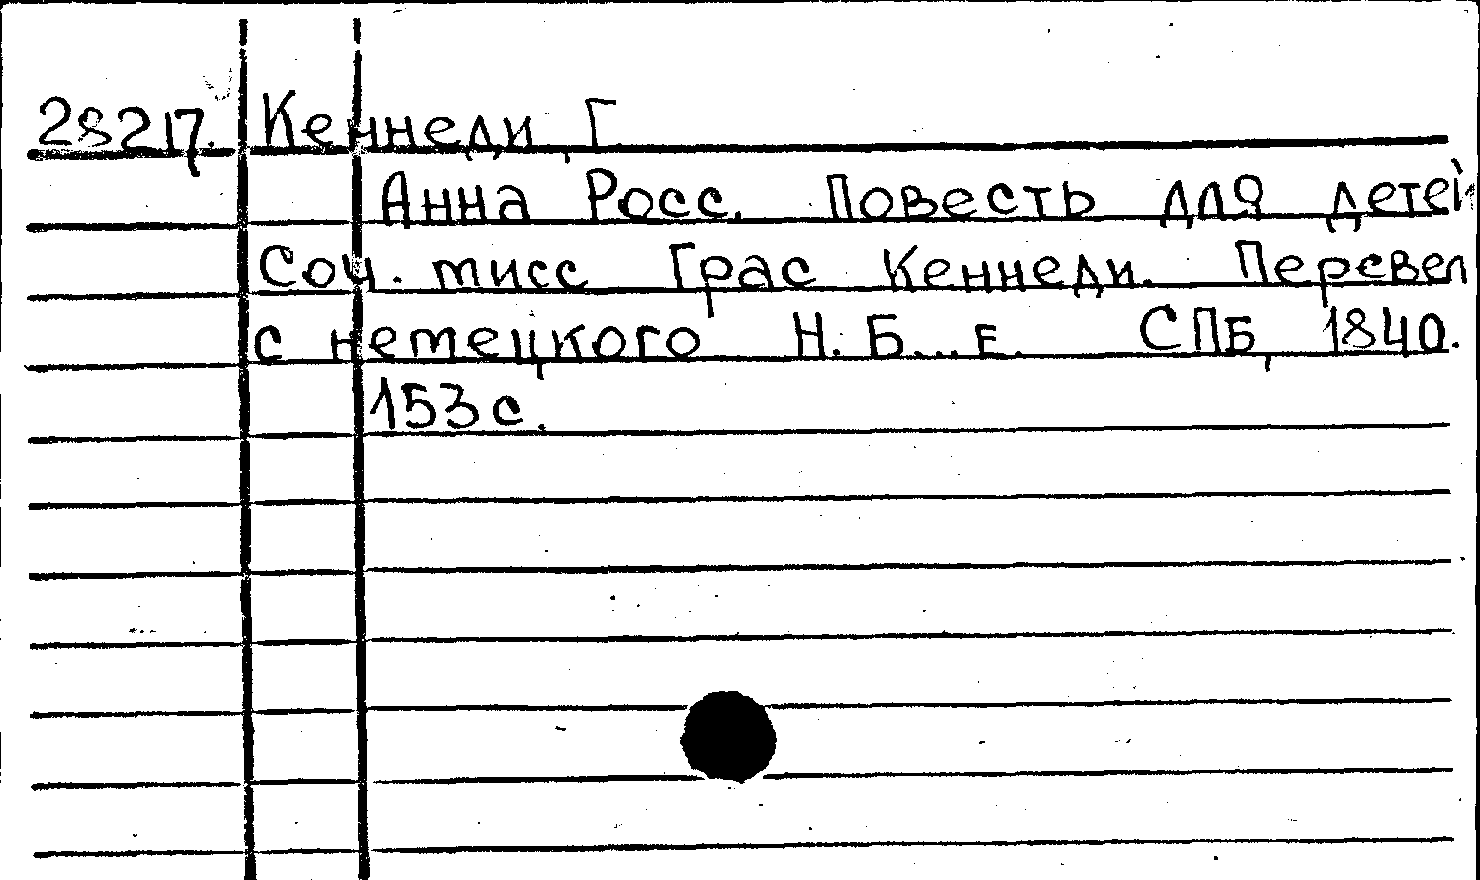 28217. Кеннеди, Г.
Анна Росс. Повесть для детей
Соч. мисс Грас Кеннеди. Перевел
с немецкого Н. Б...е. СПБ, 1840.
153 с.